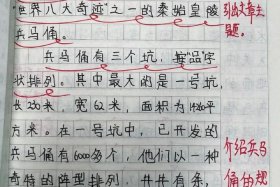 "世界八大奇迹"之一的秦始皇陵
兵马俑。
兵马俑有三个坑,"品"字
状排列。其中最大的是一号坑,
长230米,宽62米,面积为14260平
方米。在一号坑中,已开发的
兵马俑有6000多个,他们以一种
奇特的阵型排列,井井有条,
引出文章主
题。
介绍兵马
俑的